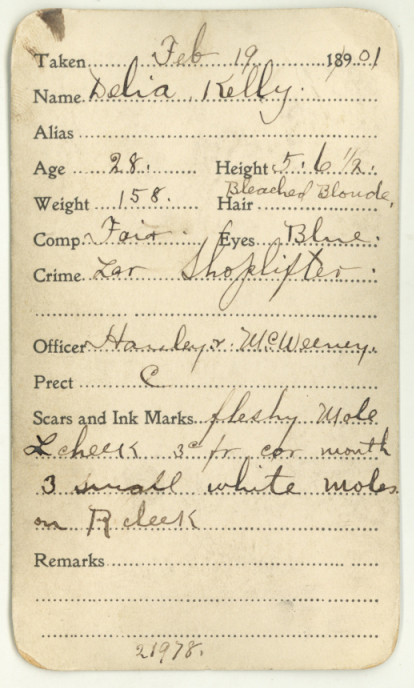 Taken Feb 19 1901
Name Delia Kelly.
Alias
Age 28. Height 5. 6 1/2.
Weight 158. Hair Bleached Blonde,
Comp. Fair Eyes Blue.
Crime Lar Shoplifter.
Officer Hanley & McWeeney.
Prect C
Scars and Ink Marks fleshy Mole
L cheek 3c fr. cor mouth
3 small white moles
on R cleek
Remarks
21978.